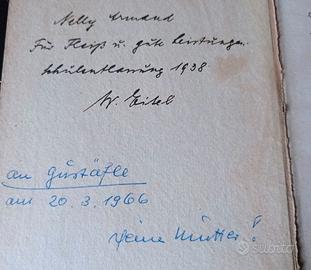 Nelly Armand
Für Fleiß u. gute Leistungen
Schulentlassung 1938
W. Eitel
an Gustäfle
am 20.3.1966
Deine Mutter!
subito